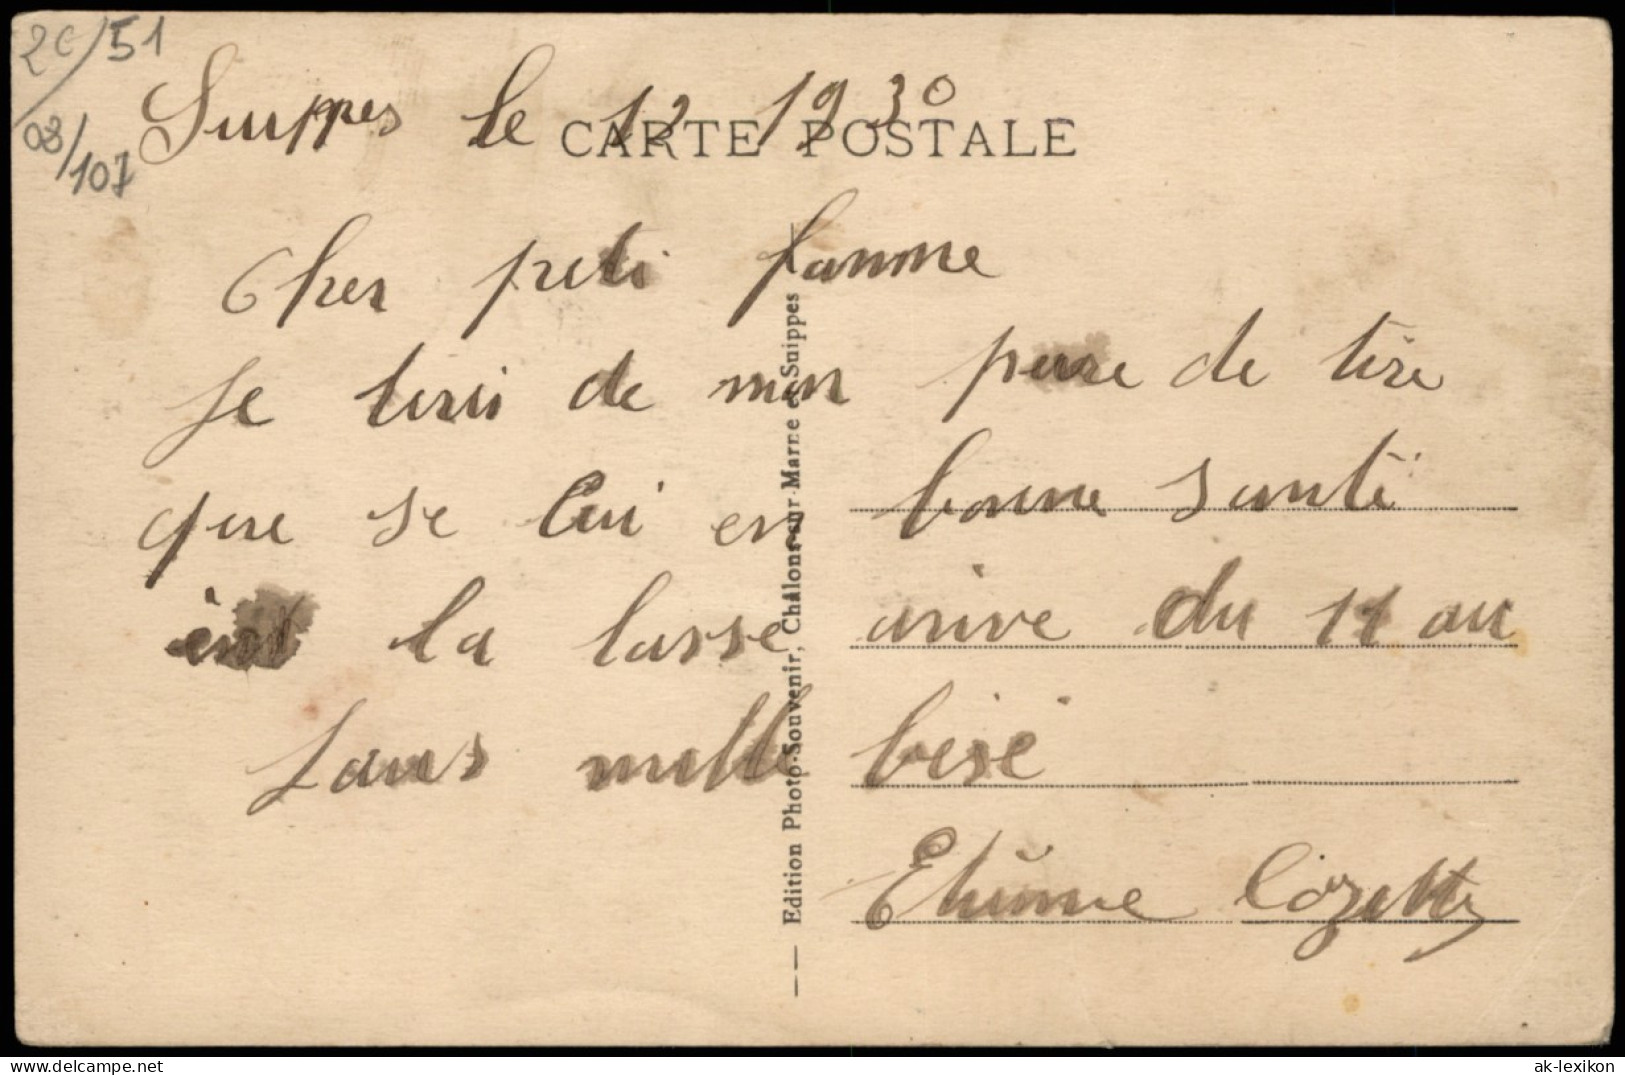 2C/51
08/107
Suippes le 12 1930
CARTE POSTALE
Cher peti famme
Je de mon de tire
que se lui en bonne santé
la lasse arive du 11 au
mille bisé
Etienne
Edition Photo-Souvenir, Châlons-sur-Marne et Suippes
ak-lexikon